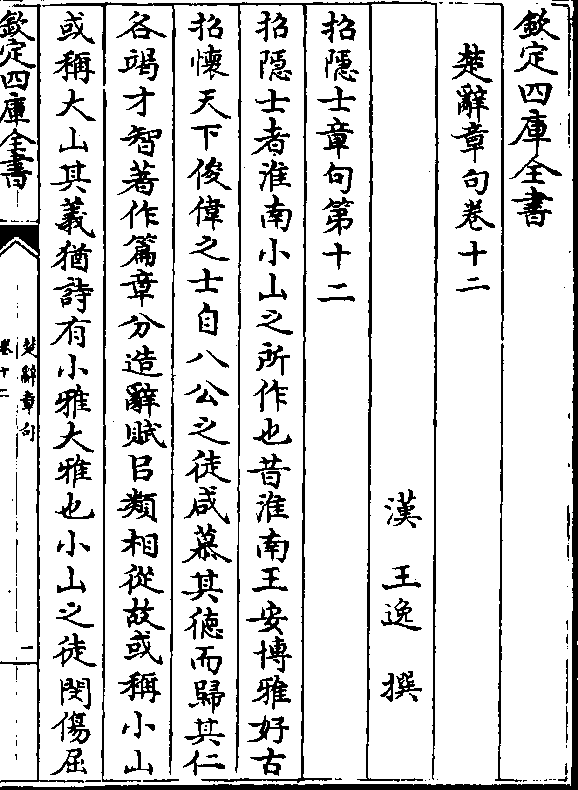 欽定四庫全書
楚辭章句卷十二
漢 王逸 撰
招隱士章句第十二
招隱士者淮南小山之所作也昔淮南王安博雅好古
招懷天下俊偉之士自八公之徒咸慕其德而歸其仁
各竭才智著作篇章分造辭賦㠯類相從故或稱小山
或稱大山其義猶詩有小雅大雅也小山之徒閔傷屈
欽定四庫全書
楚辭章句
卷十二
一